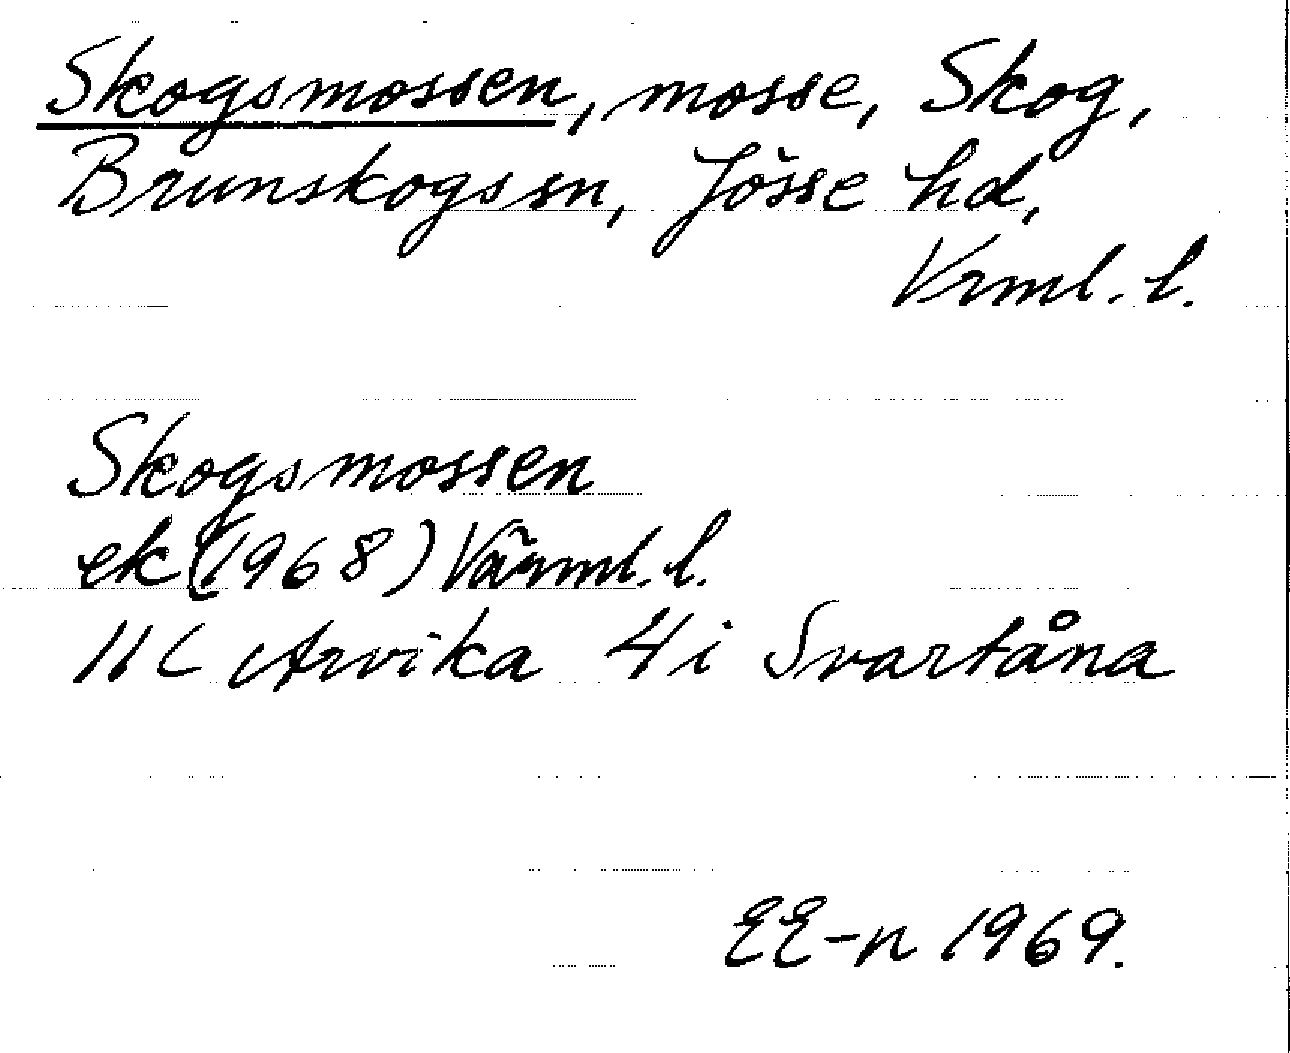 Skogsmossen, mosse, Skog,
Brunskogs sn, Jösse hd,
Vrml. l.
Skogsmossen
ek (1968) Värml. l.
11C Arvika 4i Svartåna
EE-n 1969.